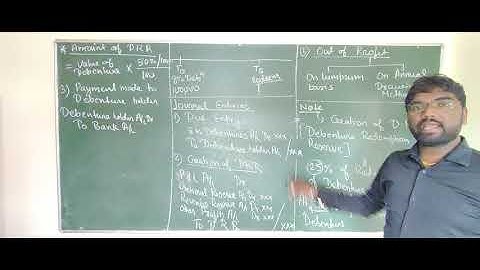 * Amount of DRR
= Value of Debenture × 50%/100
3) Payment made to
Debenture holder
Debenture holder A/c Dr
To Bank A/c
T0
8% Deb
100000
T5
Redeem
Journal Entries
1) Due Entry
8% Debentures A/c Dr xxx
To Debenture holder A/c xxx
2) Creation of DRR
P&L A/c Dr
General Reserve A/c Dr xxx
Revenue Reserve A/c Dr xxx
Other Profits A/c Dr xxx
To D R R xxx
1) Out of Profit
On lumpsum
basis
On Annual
Method
Note
1, Creation of D
[Debenture Redemption
Reserve]
(25)% of
of Debenture
Debenture